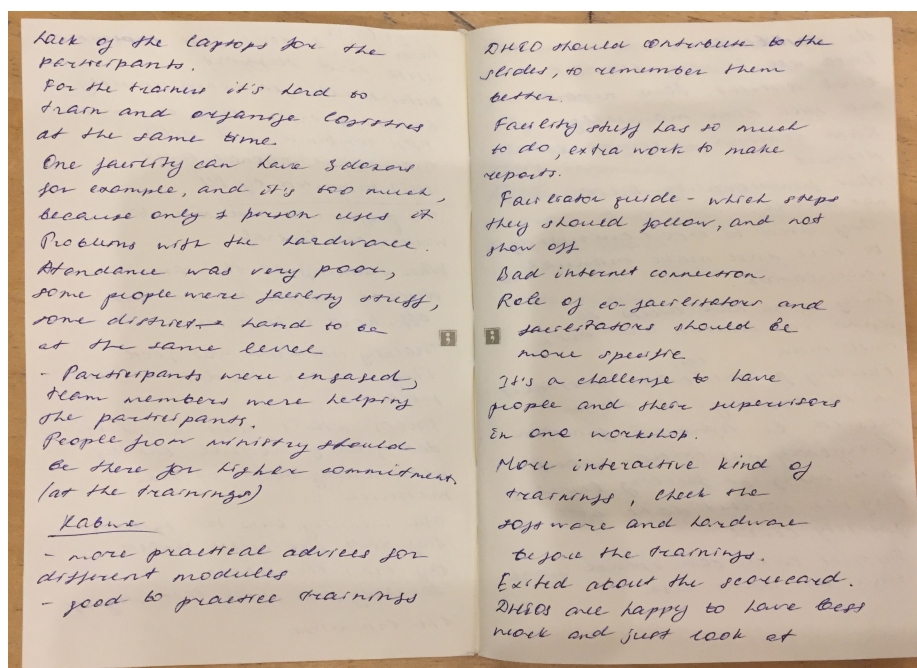 Lack of the laptops for the
participants.
For the trainers it's hard to
train and organize logistics
at the same time.
One facility can have 3 doxors
for example, and it's too much,
because only 1 person uses it
Problems with the hardware.
Atendance was very poor,
some people were facility stuff,
some district hard to be
at the same level
- Participants were engaged,
team members were helping
the participants.
People from ministry should
be there for higher commitment.
(at the trainings)
Kabwe
- more practical advices for
different modules
- good to practice trainings
DHIO should contribute to the
slides, to remember them
better.
Facility stuff has so much
to do, extra work to make
reports.
Facilitator guide - which steps
they should follow, and not
show off
Bad internet connection
Role of co-facilitators and
facilitators should be
more specific
It's a challenge to have
people and their supervisors
in one workshop.
More interactive kind of
trainings, check the
software and hardware
before the trainings.
Exited about the scorecard.
DHIOs are happy to have less
work and just look at